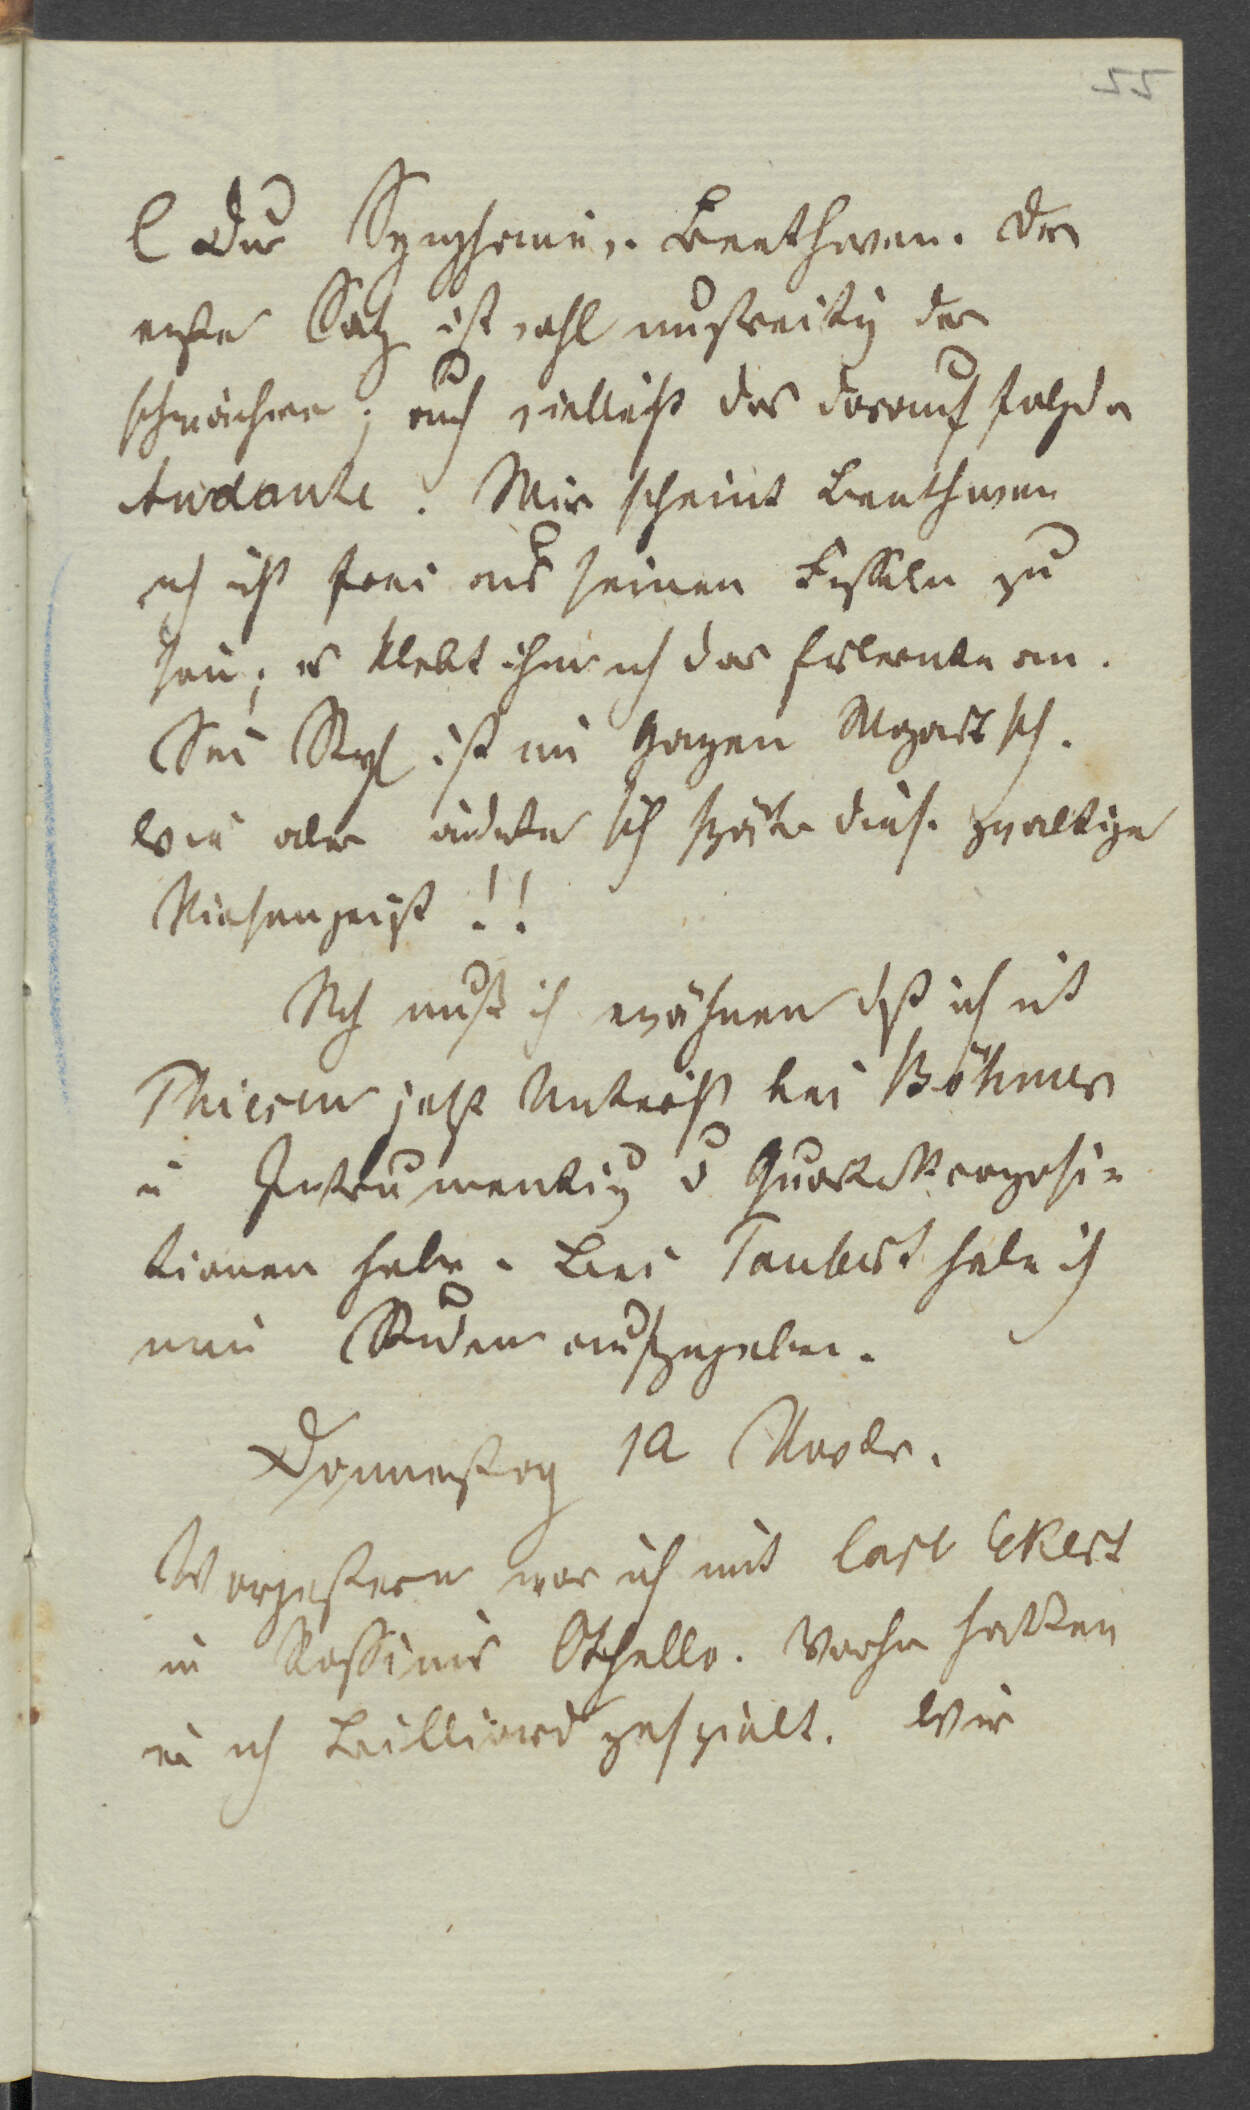 55
C Dur Symphonie v. Beethoven. Der
erste Satz ist wohl unstreitig der
schwächere; auch vielleicht das darauf folgde
Andante. Mir scheint Beethoven
nch nicht frei aus seinen Fesseln zu
sein; es klebt ihm nch das Erlernte an.
Sein Styl ist im Ganzen Mozartsch.
Wie aber änderte sich später dieser gwaltige
Riesengeist!!
Nch muß ich erwähnen dß ich mit
Thiesen jetzt Unterricht bei Böhmer
in Instrumentirg u Quartettcomposi=
tionen habe. Bei Taubert habe ich
meine Stunden aufgegeben.
Donnerstag 12 Novbr.
Vorgestern war ich mit Carl Ekert
in Rossinis Othello. Vorher hatten
wir nch Billiard gespielt. Wir